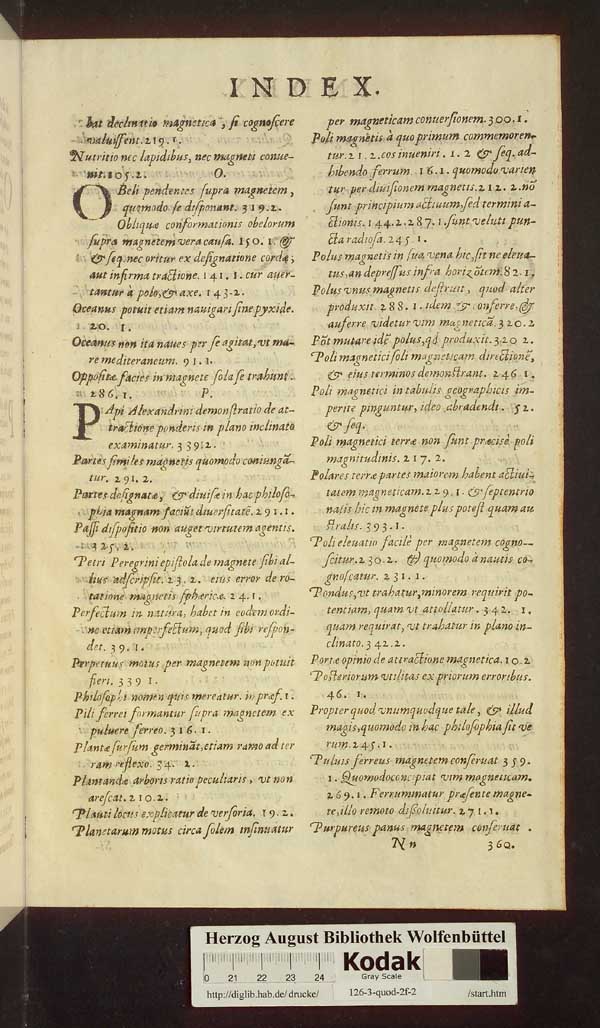 INDEX.
bat declinatio magnetica, si cognoscere
maluissent. 219. 1.
Nutritio nec lapidibus, nec magneti conue-
nit. 105. 2. O.
OBeli pendentes supra magnetem,
quomodo se disponant. 319. 2.
Obliquæ conformationis obelorum
supra magnetem vera causa. 150. 1. &
& seq. nec oritur ex designatione cordæ;
aut infirma tractione. 141. 1. cur auer-
tantur à polo, & axe. 143. 2.
Oceanus potuit etiam nauigari sine pyxide.
20. 1.
Oceanus non ita naues per se agitat, vt ma-
re mediteraneum. 91. 1.
Oppositæ facies in magnete sola se trahunt.
286. 1. P.
PApi Alexandrini demonstratio de at-
tractione ponderis in plano inclinato
examinatur. 339. 2.
Partes similes magnetis quomodo coniungā-
tur. 291. 2.
Partes designatæ, & diuisæ in hac philoso-
phia magnam faciūt diuersitatē. 291. 1.
Passi dispositio non auget virtutem agentis.
325. 2.
Petri Peregrini epistola de magnete sibi al-
lius adscripsit. 23. 2. eius error de ro-
tatione magnetis sphæricæ. 24. 1.
Perfectum in natura, habet in eodem ordi-
ne etiam imperfectum, quod sibi respon-
det. 39. 1.
Perpetuus motus per magnetem non potuit
fieri. 339 1.
Philosophi nomen quis mereatur. in præf. 1.
Pili ferrei formantur supra magnetem ex
puluere ferreo. 316. 1.
Plantæ sursum germināt, etiam ramo ad ter
ram reflexo. 34. 2.
Plantandæ arboris ratio peculiaris, vt non
arescat. 210. 2.
Plauti locus explicatur de versoria. 19. 2.
Planetarum motus circa solem insinuatur
per magneticam conuersionem. 300. 1.
Poli magnetis à quo primum commemoren-
tur. 21. 2. cos inueniri. 1. 2 & seq. ad-
hibendo ferrum 16. 1. quomodo varien
tur per diuisionem magnetis. 212. 2. nō
sunt principium actiuum, sed termini a-
ctionis. 144. 2. 287. 1. sunt veluti pun-
cta radiosa. 245 1.
Polus magnetis in sua vena hic, sit ne eleua-
tus, an depressus infra horizōtem. 82. 1.
Polus vnus magnetis destruit, quod alter
produxit. 288. 1. idem & conferre, &
auferre videtur vim magneticā. 320. 2
Pōt mutare idē polus, qd produxit. 320 2.
Poli magnetici soli magneticam directionē,
& eius terminos demonstrant. 246 1.
Poli magnetici in tabulis geographicis im-
perite pinguntur, ideo abradendi. 52.
& seq.
Poli magnetici terræ non sunt præcisè poli
magnitudinis. 217. 2.
Polares terræ partes maiorem habent actiui-
tatem magneticam. 229. 1. & septentrio
nalis hic in magnete plus potest quam au
stralis. 393. 1.
Poli eleuatio facilè per magnetem cogno-
scitur. 230. 2. & quomodo à nautis co-
gnoscatur. 231. 1.
Pondus, vt trahatur, minorem requirit po-
tentiam, quam vt attollatur. 342. 1.
quam requirat, vt trahatur in plano in-
clinato. 342. 2.
Portæ opinio de attractione magnetica. 10. 2
Posteriorum vtilitas ex priorum erroribus.
46. 1.
Propter quod vnumquodque tale, & illud
magis, quomodo in hac philosophia sit ve
rum. 245. 1.
Puluis ferreus magnetem conseruat 359.
1. Quomodo concipiat vim magneticam.
269. 1. Ferruminatur præsente magne-
te, illo remoto dissoluitur. 271. 1.
Purpureus panus magnetem conseruat.
Nn 360.
Herzog August Bibliothek Wolfenbüttel
0 21 22 23 24
Kodak
Gray Scale
http://diglib.hab.de/drucke/ 126-3-quod-2f-2 /start.htm